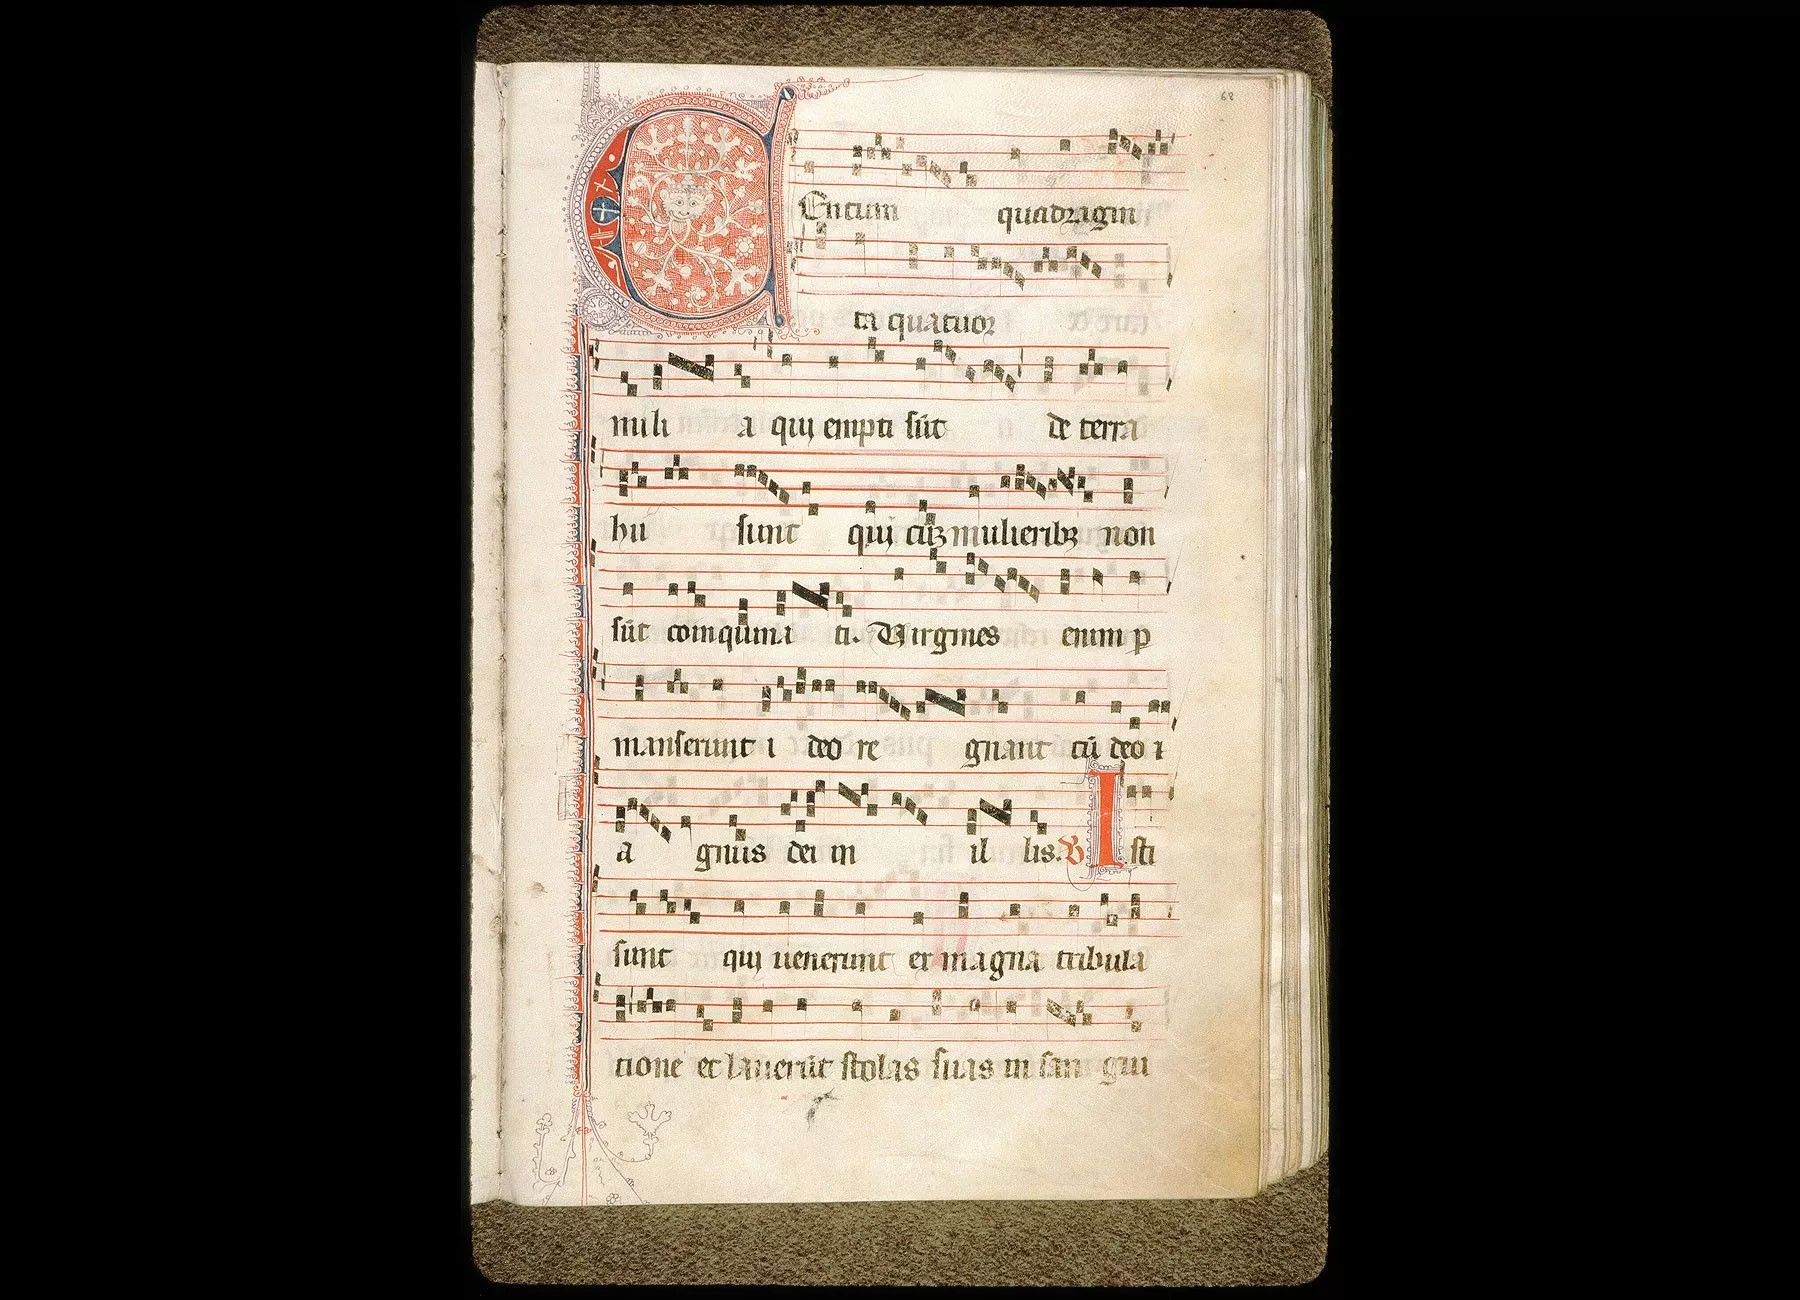 68
Centum quadragin
ta quatuor
mili a qui empti sũt de terra
hii sunt qui cũ mulieribꝫ non
sũt coinquina ti. Virgines enim ꝑ
manserunt i deo re gnant cũ deo ⁊
a gnus dei in il lis. ℣ Isti
sunt qui uenerunt ex magna tribula
tione et lauerũt stolas suas in san gui